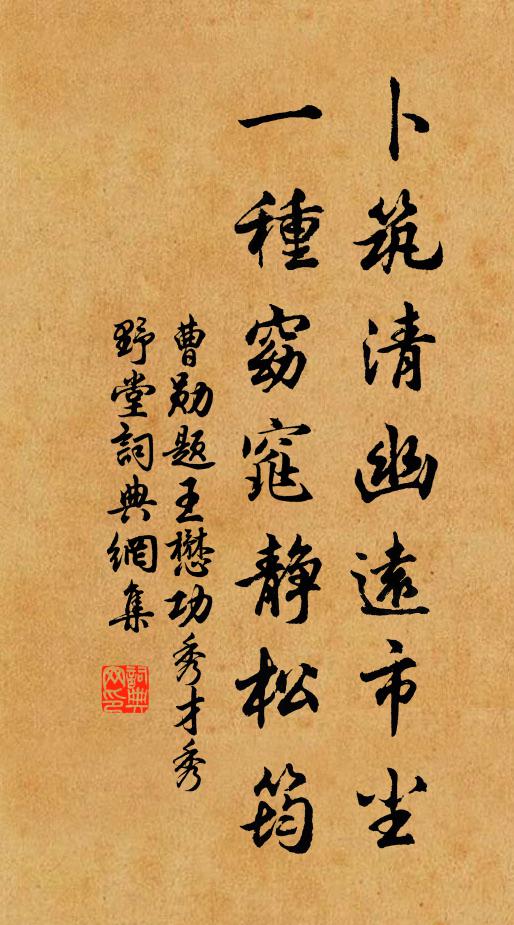 卜筑清幽遠市尘
一種窈窕静松筠
曹勋题王懋功秀才秀
野堂詞典網集
詞典网印